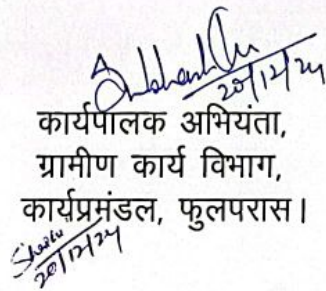 20/12/24
कार्यपालक अभियंता,
ग्रामीण कार्य विभाग,
कार्यप्रमंडल, फुलपरास।
20/12/24